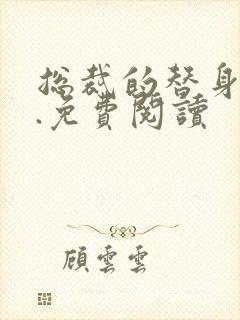 总裁的替身
.免費閱讀
顧雲雲